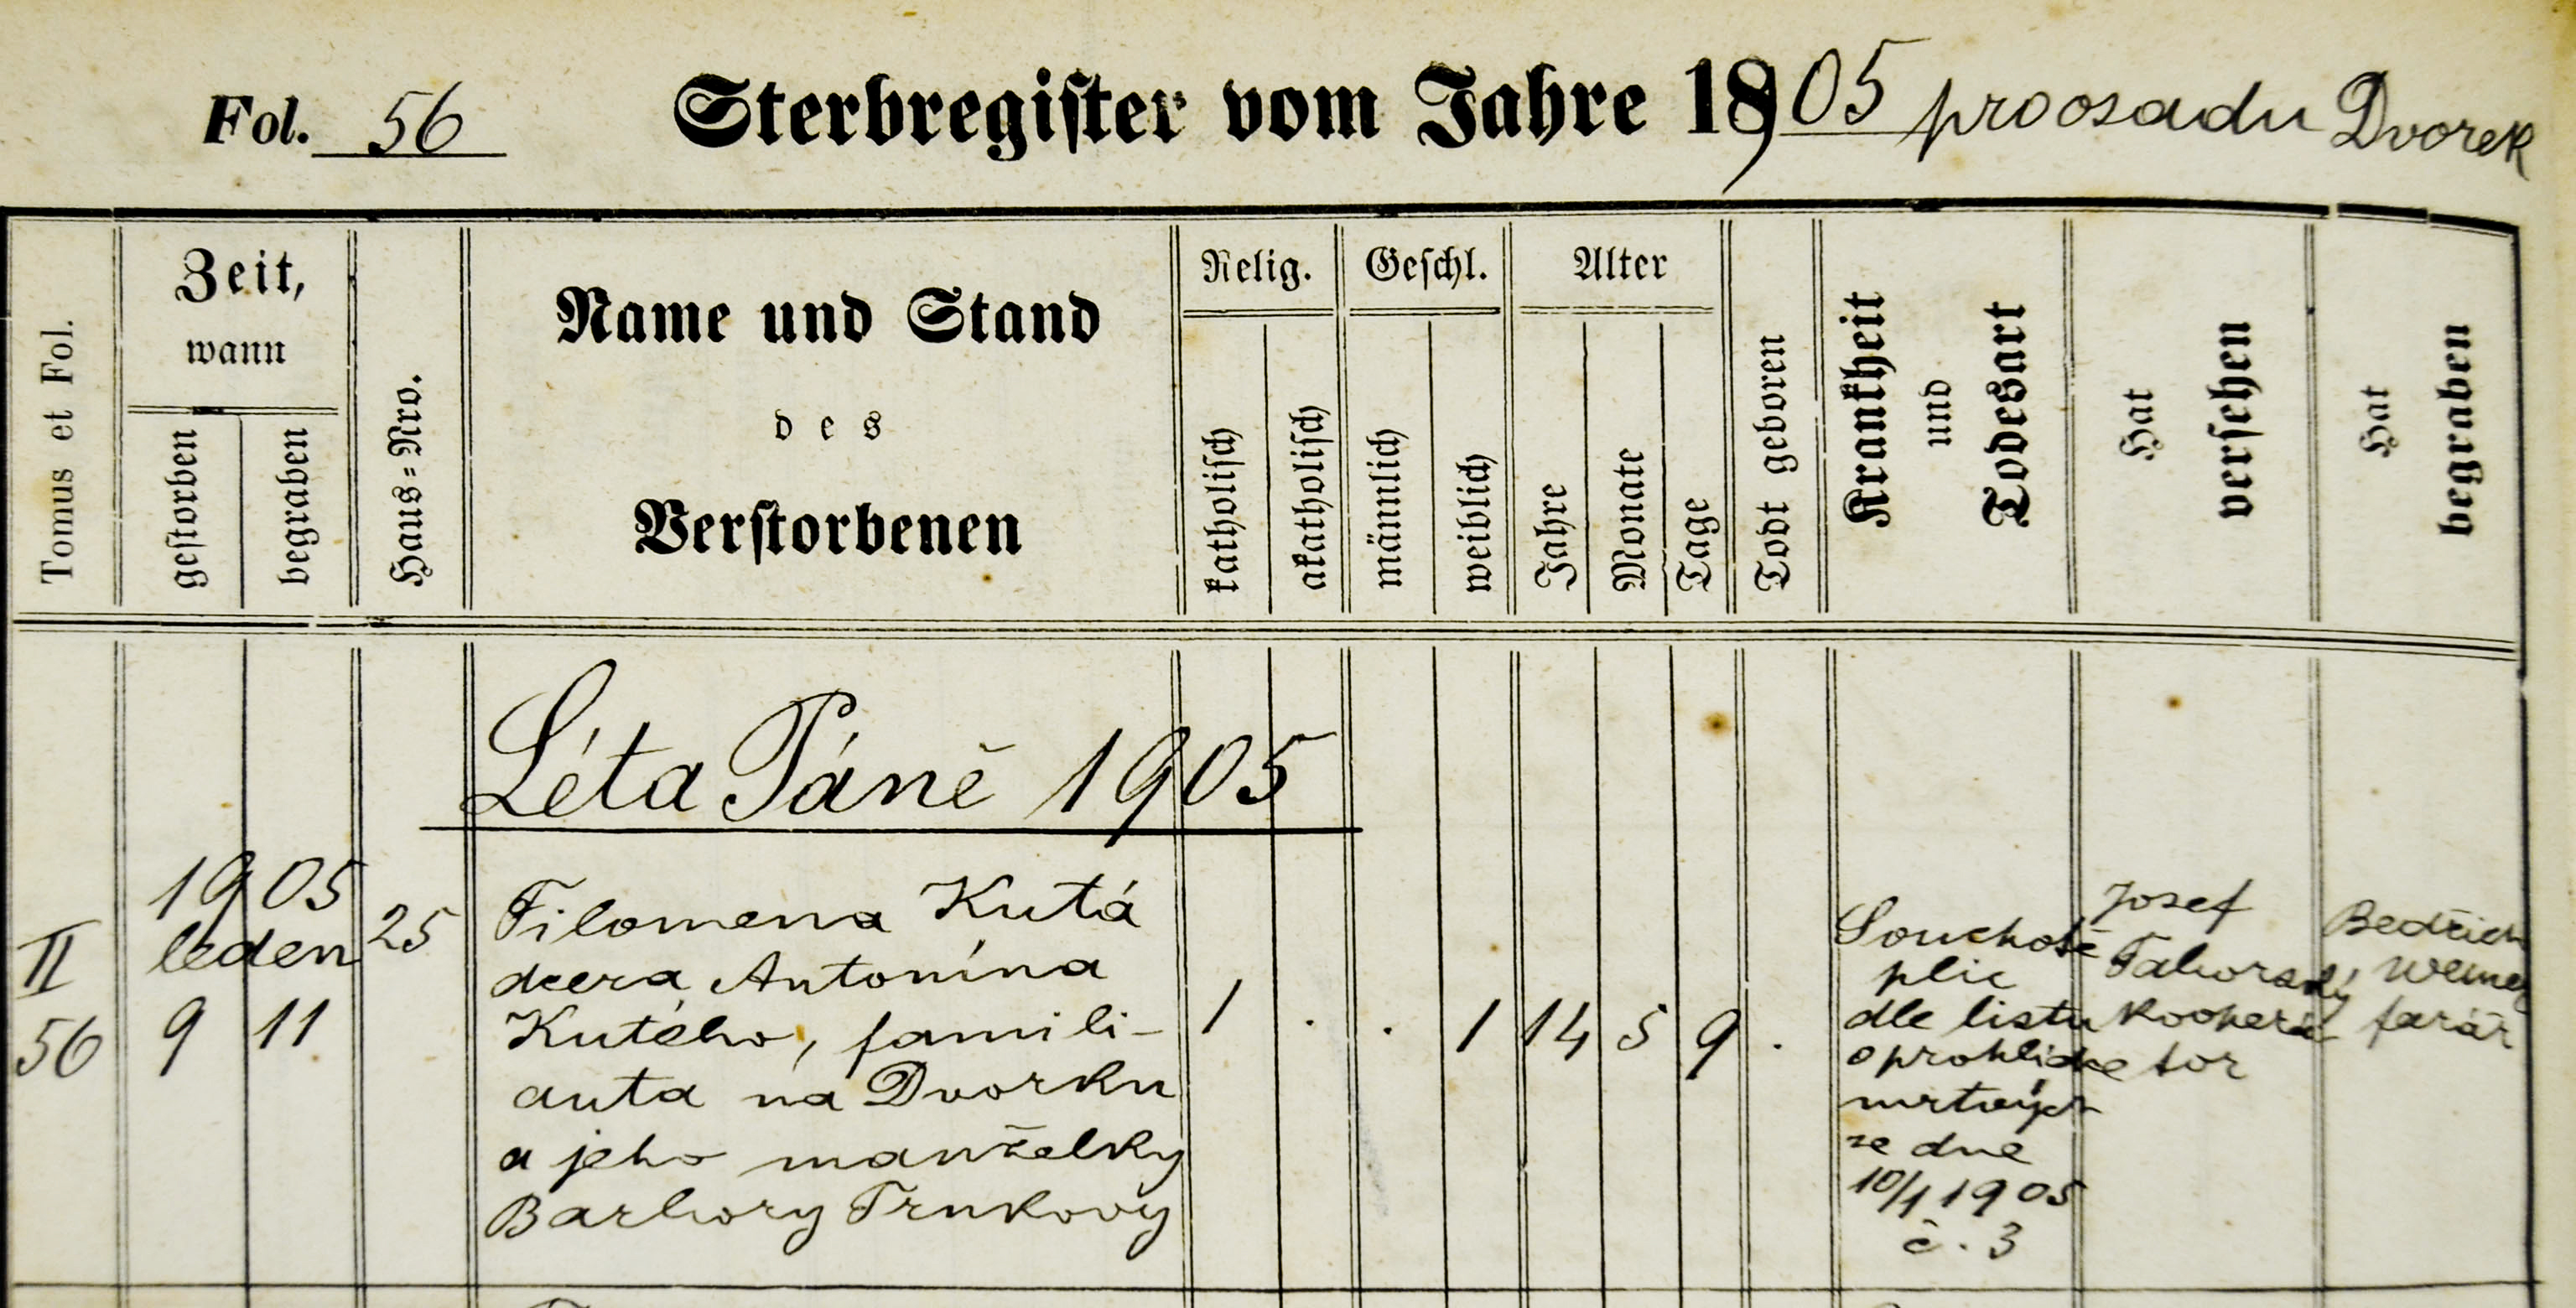 Fol. 56 Sterbregister vom Jahre 1905 pro osadu Dvorek
Tomus et Fol.
Zeit,
wann
gestorben
begraben
Haus=Nro.
Name und Stand
des
Verstorbenen
Relig.
katholisch
akatholisch
Geschl.
männlich
weiblich
Alter
Jahre
Monate
Tage
Todt geboren
Krankheit
und
Todesart
Hat
versehen
Hat
begraben
Léta Páně 1905
II
56
1905
leden
9 11
25
Filomena Kutá
dcera Antonína
Kutého, famili-
anta na Dvorku
a jeho manželky
Barbory Trnkovy
1 . . 1 14 5 9 .
Souchotě
plic
dle listu
o prohlídce
mrtvých
ze dne
10/1 1905
č. 3
Josef
Taborský
koopera
tor
Bedřich
farář